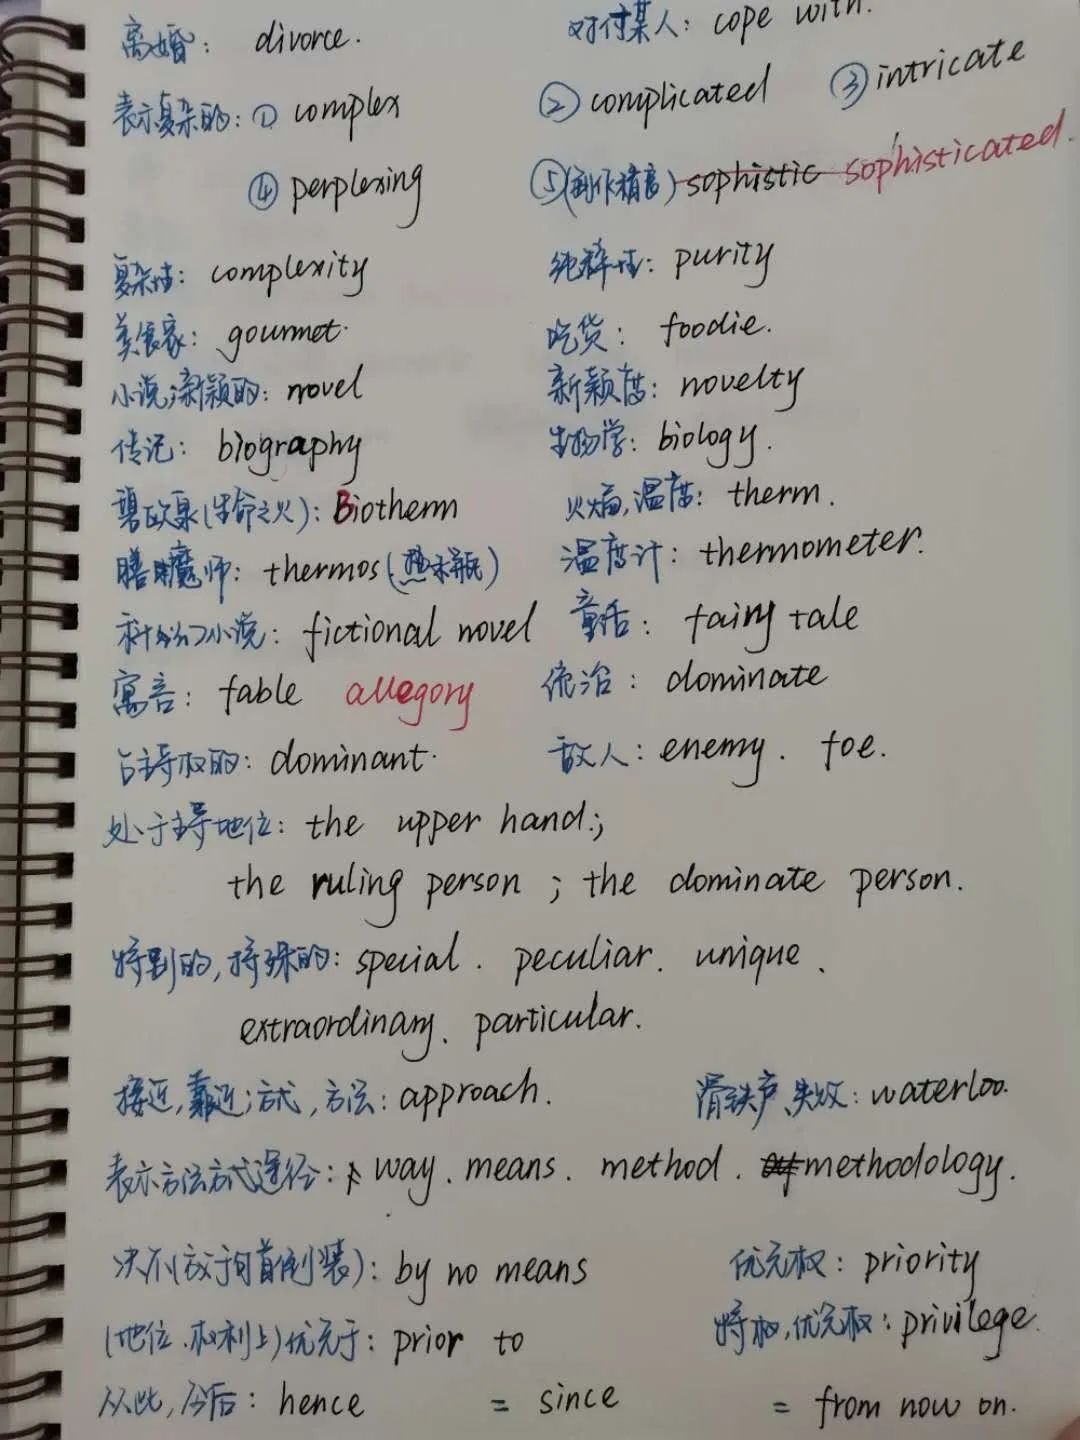 离婚: divorce. 对付某人: cope with.
表示复杂的: ① complex ② complicated ③ intricate
④ perplexing ⑤(制作精良) sophistic sophisticated.
复杂性: complexity 纯粹性: purity
美食家: gourmet. 吃货: foodie.
小说;新颖的: novel 新颖度: novelty
传记: biography 生物学: biology.
碧欧泉(生命之火): Biotherm 火焰,温度: therm.
膳魔师: thermos(热水瓶) 温度计: thermometer.
科幻小说: fictional novel 童话: fairy tale
寓言: fable allegory 统治: dominate
占主导权的: dominant. 敌人: enemy. foe.
处于主导地位: the upper hand.;
the ruling person ; the dominate person.
特别的,特殊的: special. peculiar. unique.
extraordinary. particular.
接近,靠近;方式,方法: approach. 滑铁卢、失败: waterloo.
表示方法方式途径: way. means. method. methodology.
决不(放于句首倒装): by no means 优先权: priority
(地位.权利上)优先于: prior to 特权,优先权: privilege.
从此,今后: hence = since = from now on.